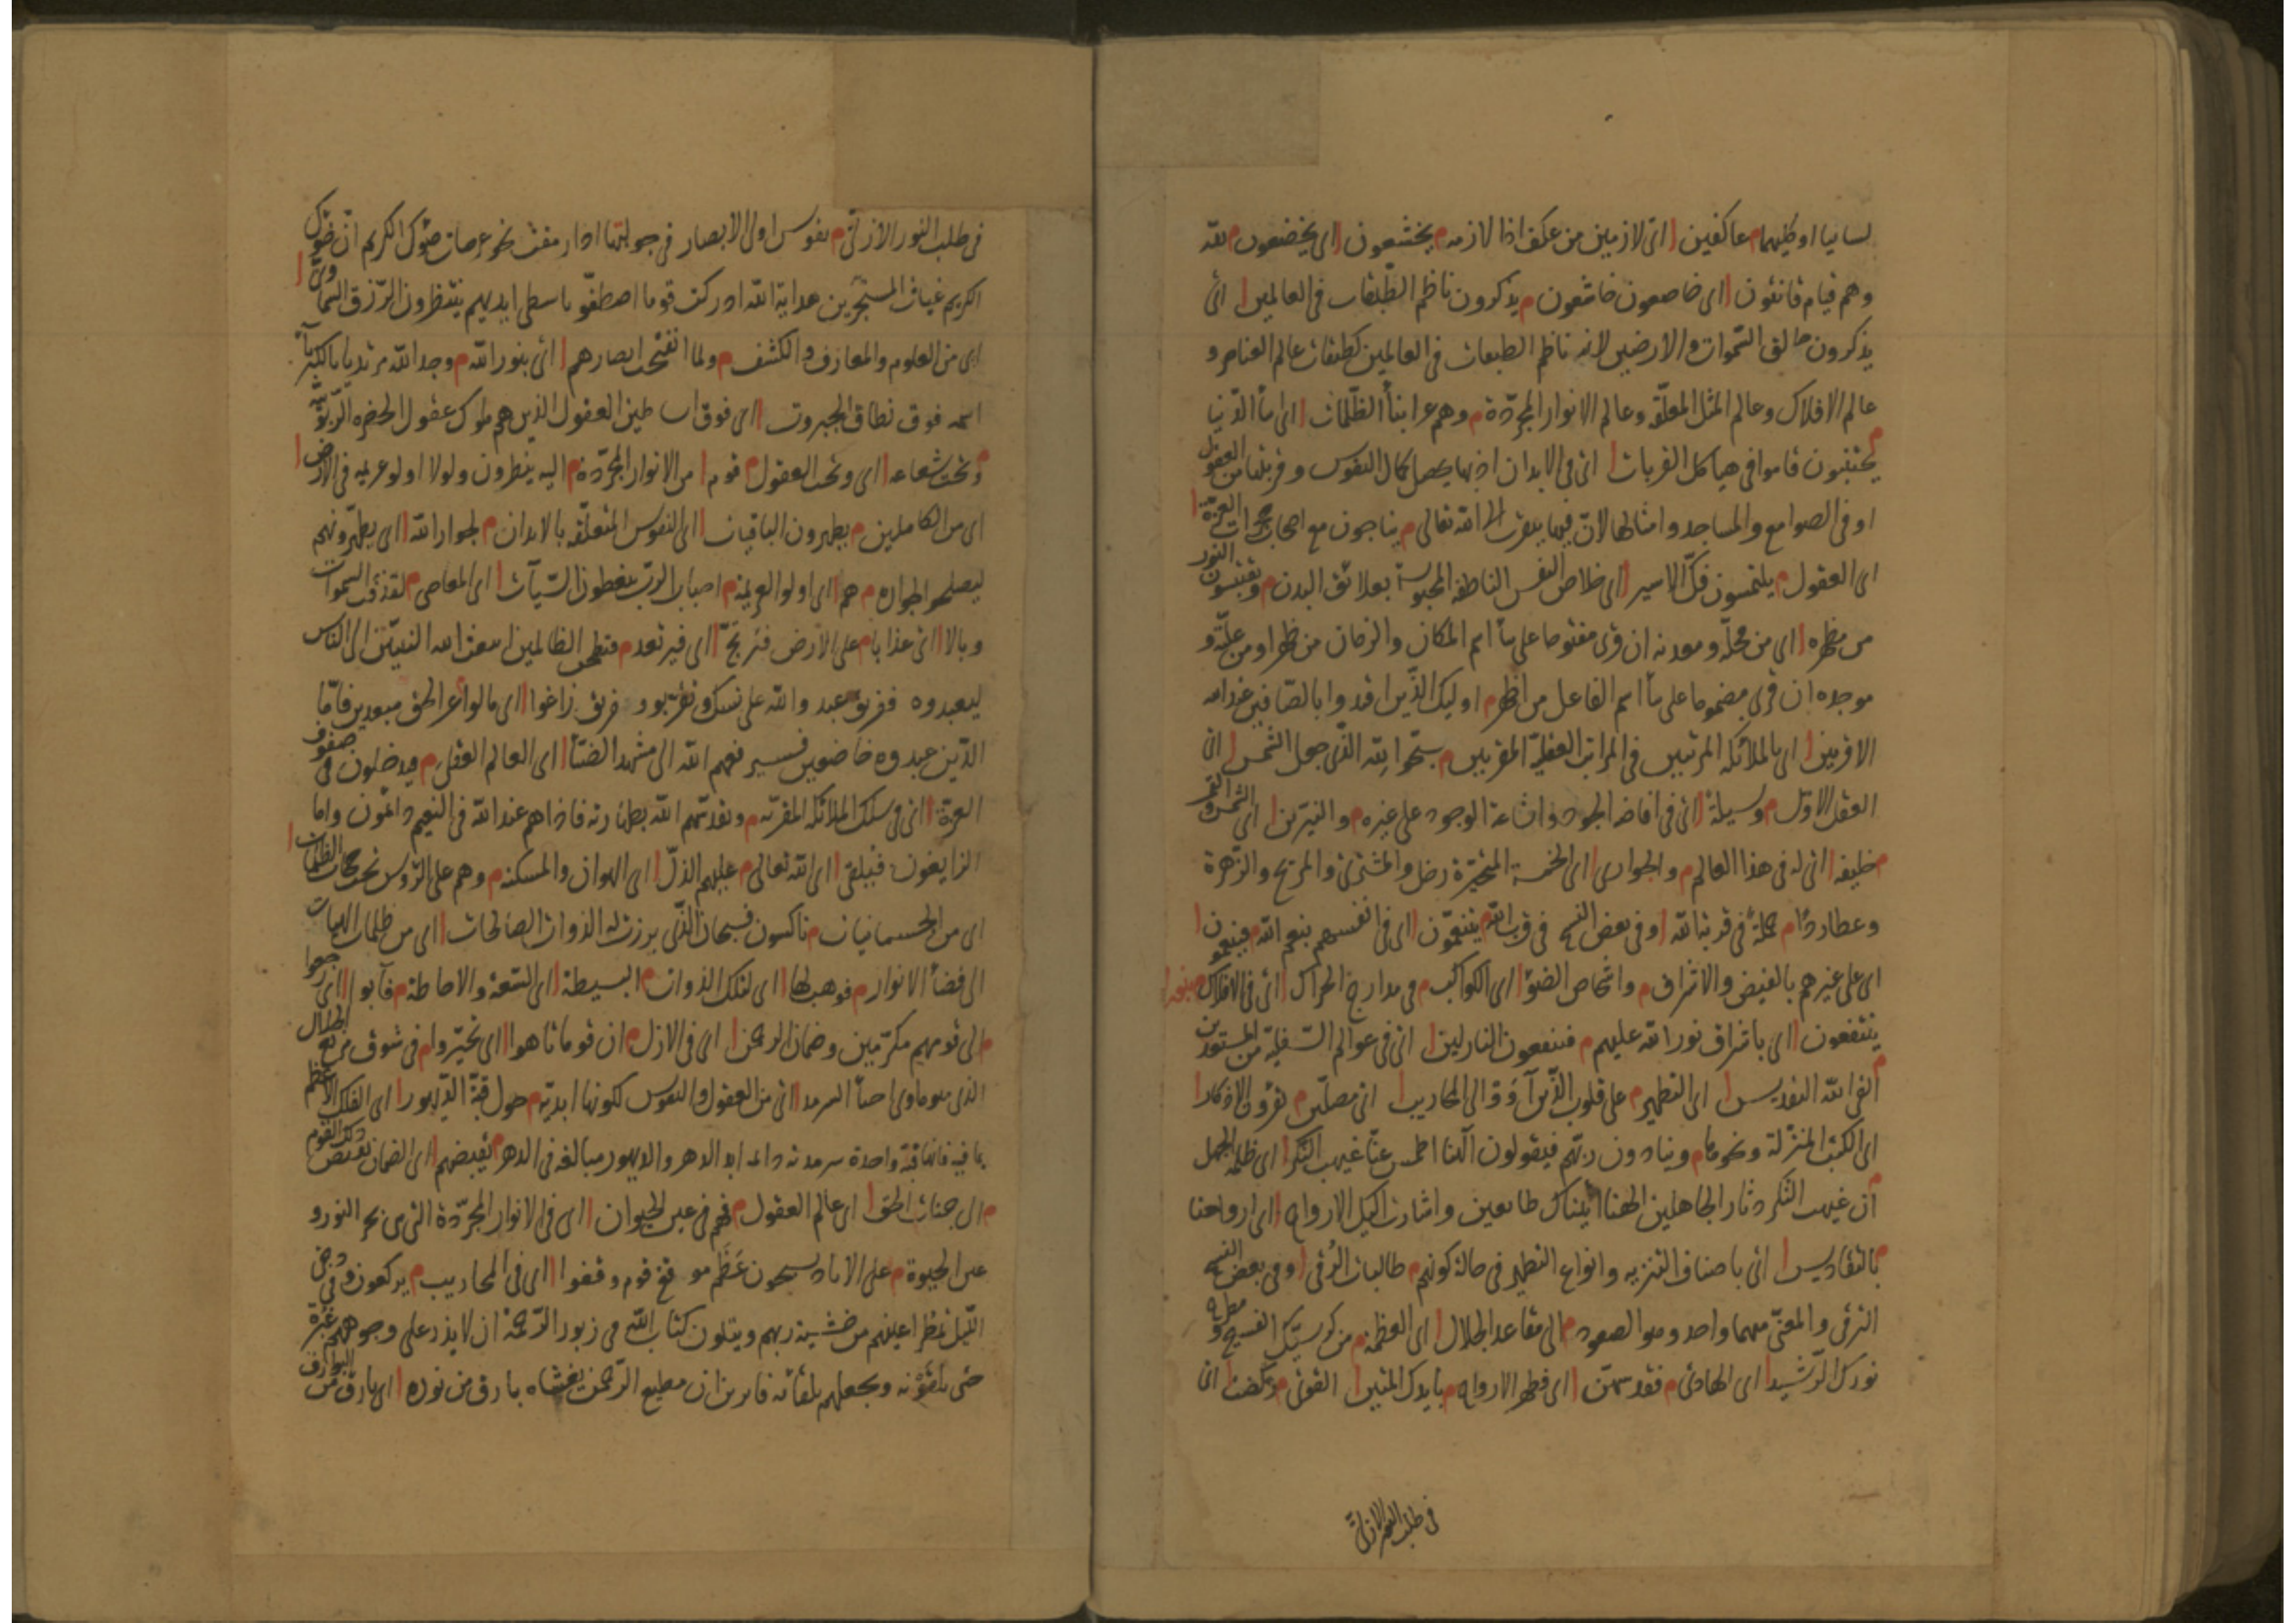 لسانيا او ظيهما م عاكفين ا اى لازمين من عكف اذا لازمه م يخشعون ا اى يخضعون م لله
وهم قيام قانتون ا اى خاضعون خاشعون م يذكرون ناظم الطبقات فى العالمين ا اى
يذكرون خالق السموات والارضين لانه ناظم الطبقات فى العالمين كطبقات عالم العناصر و
عالم الافلاك وعالم المثل المعلقة وعالم الانوار المجردة م وهم عن ابناء الظلمات ا اى ابناء الدنيا
م يجتنبون قاموا فى هياكل القربات ا اى فى الابدان اذ بها يحصل كمال النفوس وقربتها من العقول
او فى الصوامع والمساجد وامثالها لان فيها يتقرب الى الله تعالى م يناجون مع اصحاب حجرات العزة ا
اى العقول م يلتمسون فك الاسير ا اى خلاص النفس الناطقة المحبوسة بعلائق البدن م ويقتبسون النور
من مظهره ا اى من محله ومعدنه ان قرئ مفتوحا على بناء اسم المكان والزمان من ظهر او من علته و
موجده ان قرئ مضموما على بناء اسم الفاعل من اظهر م اوليك الذين اقتدوا بالصافين عند الله
الاقربين ا اى بالملائكة المرتبين فى المراتب العقلية المقربين م سبحوا لله الذى جعل الشمس ا اى
العقل الاول م وسيلة ا اى فى افاضة الجود واشاعة الوجود على غيره م والنيرين ا اى الشمس والقمر
م خليفه ا اى له فى هذا العالم م والجوارى ا اى الخمسة المتحيرة زحل والمشترى والمريخ والزهرة
وعطارد م حملة فى قربة الله ا وفى بعض النسخ فى قرب الله م يتنعمون ا اى فى انفسهم بنعم الله م فينعمون ا
اى على غيرهم بالفيض والاشراق م واشخاص الضوء ا اى الكواكب م فى مدارج الحراك ا اى فى الافلاك
ينتفعون ا اى باشراق نور الله عليهم م فينفعون النازلين ا اى فى عوالم السفلية من المستعدين
م القى الله التقديس ا اى التطهير م على قلوب الذين آووا الى المحاريب ا اى مصلين م يقرؤن الاذكار ا
اى الكتب المنزلة ونحوها م وينادون ربهم فيقولون الهنا اطمس عنا غيهب النكر ا اى ظلمة الجهل
م ان غيهب النكر دثار الجاهلين الهنا اتيناك طائعين واشارت اليك الارواح ا اى ارواحنا
م بالتقاديس ا اى باصناف التنزيه وانواع التطهير فى حالة كونهم م طالبات الرقى ا وفى بعض النسخ
الترقى والمعنى منهما واحد وهو الصعود م الى مقاعد الجلال ا اى العظمة م من كرسيك الفسيح و
نورك الرشيد ا اى الهادى م فقدسهن ا اى فطهر الارواح م بايدك المتين ا القوى م ركضت ا اى
فى طلب النور الازلى
فى طلب النور الازلى م نفوس اولى الابصار فى جولانها اذا رمقت نحو عرصات ضوئك الكريم ان ضوئك
الكريم غياث المستجيرين هداية الله ادركت قوما اصطفوا باسطى ايديهم ينتظرون الرزق السماوى ا
اى من العلوم والمعارف والكشف م ولما انفتحت ابصارهم ا اى بنور الله م وجدوا الله مرتديا بالكبرياء
اسمه فوق نطاق الجبروت ا اى فوق اساطين العقول الذين هم ملوك عقول الحضرة الربوبية
م وتحت شعاعه ا اى وتحت العقول م قوم ا من الانوار المجردة م اليه ينظرون ولولا اولو عزيمة فى الارض ا
اى من الكاملين م يطهرون الباقيات ا اى النفوس المتعلقة بالابدان م لجوار الله ا اى يطهرونهم
ليصلحوا لجواره م هم ا اى اولو العزيمة م احباب الرب يغطون السيآت ا اى المعاصى م لقذفت السموات
وبالا ا اى عذابا م على الارض فترتج ا اى فيرتعد م فتطحن الظالمين بعث الله النبيين الى الناس
ليعبدوه ففريق عبدوا الله على نسك وتقربوا وفريق زاغوا ا اى مالوا عن الحق مبعدين فاما
الذين عبدوه خاضعين فسيرفعهم الله الى مشهد الضياء ا اى العالم العقلى م ويدخلون فى صفوف
العزة ا اى فى سلك الملائكة المقربة م ويقدسهم الله بطهارته فاذا هم عند الله فى النعيم دائمون واما
الزايغون فيلقى ا اى الله تعالى م عليهم الذل ا اى الهوان والمسكنة م وهم على الرؤس تحت حجاب الظلمات ا
اى من الجسمانيات م ناكسون فسبحان الذى برزت له الذوات الصالحات ا اى من ظلمات الهيآت
الى فضاء الانوار م فوهب لها ا اى لتلك الذوات م البسيطة ا اى السعة والاحاطة م فآبوا ا اى رجعوا
م الى قومهم مكرمين وضمان الرحمن ا اى فى الازل م ان قوما تاهوا ا اى تحيروا م فى شوق مرتع الجلال
الذى هو ماوى احباء السرمد ا اى من العقول والنفوس لكونها ابدية م حول قبة الديهور ا اى الفلك الاعظم
بما فيه فانها قبة واحدة سرمدية دائمة ابد الدهر والديهور مبالغة فى الدهر م يقبضهم ا اى الضمان يقبض ذلك القوم
م الى جنات الحق ا اى عالم العقول م فهم فى عين الحيوان ا اى فى الانوار المجردة التى هى بحر النور و
عين الحيوة م على الآباد يسبحون عظم موقع قوم وقفوا ا اى فى المحاريب م يركعون وفى دجى
الليل تمطر اعينهم من خشية ربهم ويتلون كتاب الله فى زبور الرحمة ان لا يذر على وجوههم غبرة
حتى يلقونه ويجعلهم بلقائه فائزين ان مطيع الرحمن يغشاه بارق من نوره ا اى بارق من البوارق